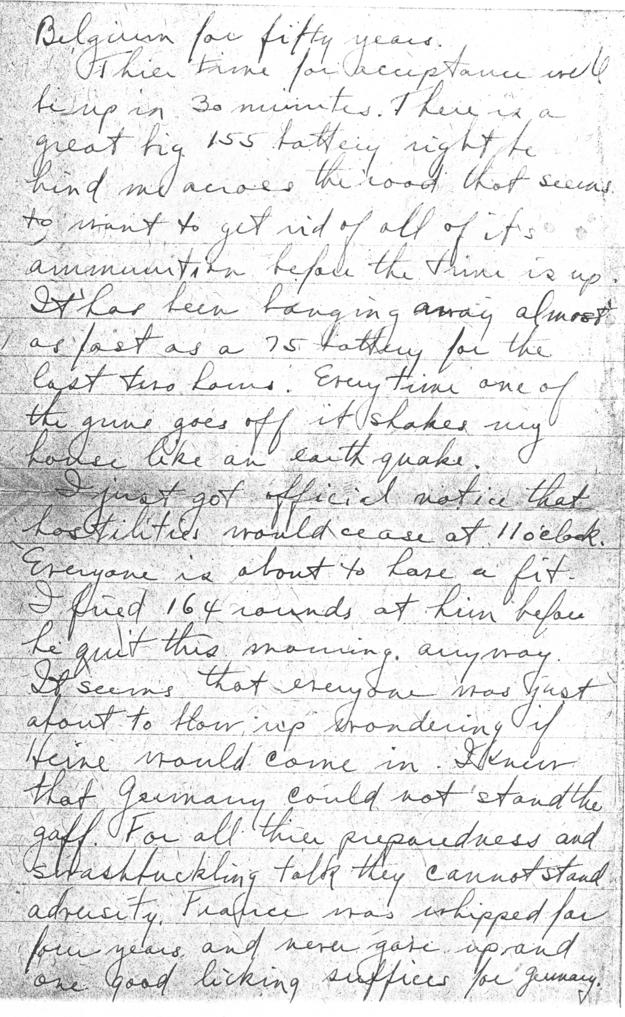 Belgium for fifty years.
Thier time for acceptance will
be up in 30 minutes. There is a
great big 155 battery right be
hind me across the road that seems
to want to get rid of all of it's
ammunition before the time is up.
It has been banging away almost
as fast as a 75 battery for the
last two hours. Every time one of
the guns goes off it shakes my
house like an earth quake.
I just got official notice that
hostilities would cease at 11 oclock.
Everyone is about to have a fit.
I fired 164 rounds at him before
he quit this morning. anyway.
It seems that everyone was just
about to blow up wondering if
Heine would come in. I knew
that Germany could not stand the
gaff. For all thier preparedness and
swashbuckling talk they cannot stand
adversity. France was whipped for
four years and never gave up and
one good licking suffices for Germany.